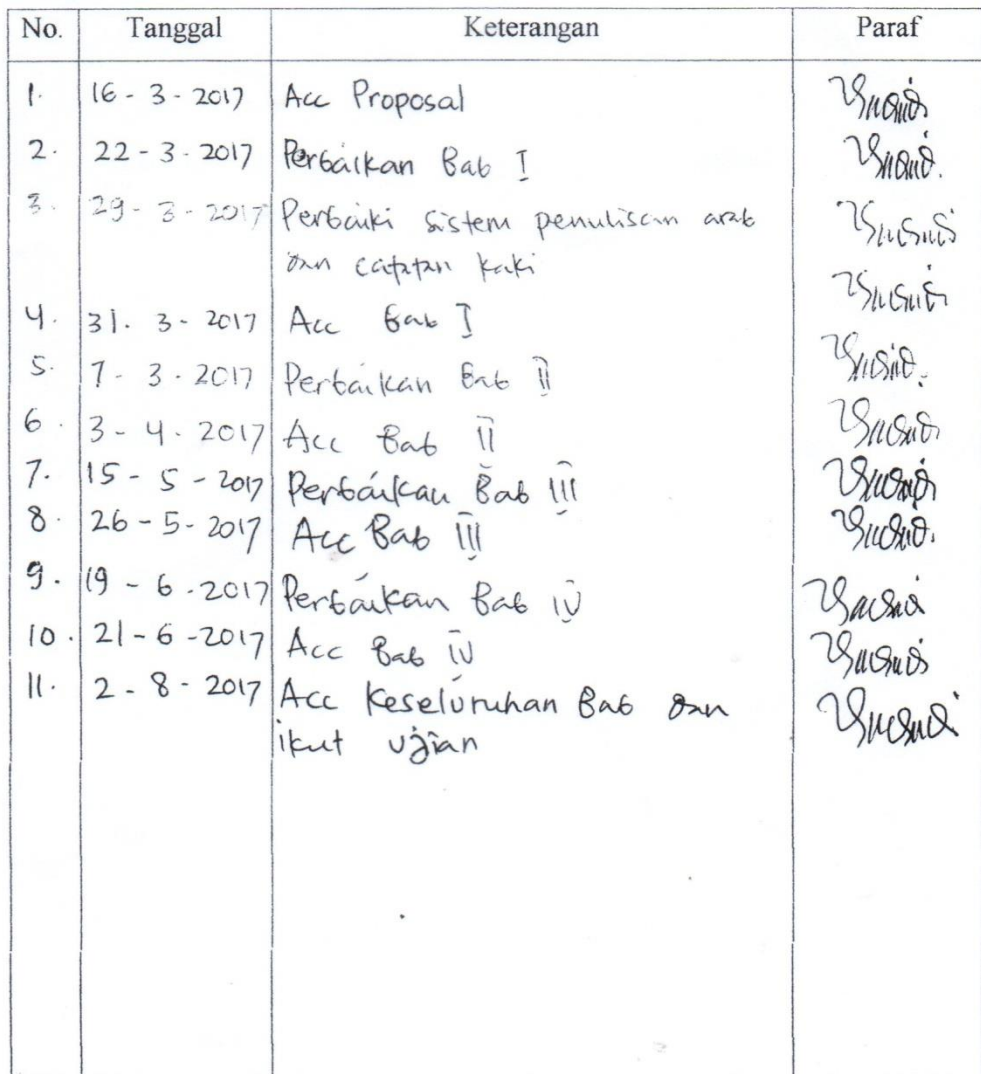 No. Tanggal Keterangan Paraf
1. 16 - 3 - 2017 Acc Proposal
2. 22 - 3 - 2017 Perbaikan Bab I
3. 29 - 3 - 2017 Perbaiki sistem penulisan arab
dan catatan kaki
4. 31. 3 - 2017 Acc Bab I
5. 7 - 3 - 2017 Perbaikan Bab II
6. 3 - 4 - 2017 Acc Bab II
7. 15 - 5 - 2017 Perbaikan Bab III
8. 26 - 5 - 2017 Acc Bab III
9. 19 - 6 - 2017 Perbaikan Bab IV
10. 21 - 6 - 2017 Acc Bab IV
11. 2 - 8 - 2017 Acc Keseluruhan Bab dan
ikut ujian